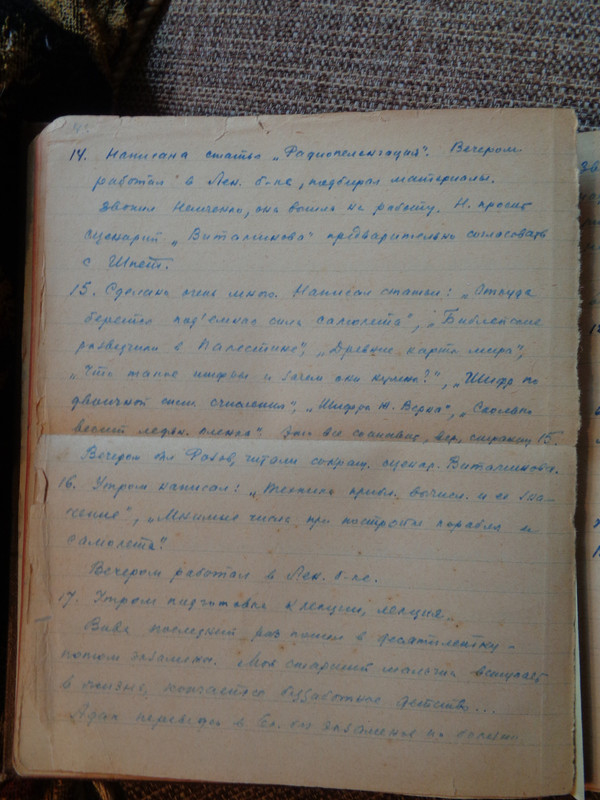 14. Написана статья „Радиопеленгация". Вечером
работал в Лен. б-ке, подбирал материалы.
Звонил Немченко, она вошла на работу. Н. просит
сценарий „Виталинова" предварительно согласовать
с Шпет.
15. Сделано очень много. Написал статьи: „Откуда
берется под'емная сила самолета", „Библейские
разведчики в Палестине", „Древние карты мира",
„Что такое шифры и зачем они нужны?", „Шифр по
двоичной сист. счисления", „Шифры Ж. Верна", „Сколько
весит ледян. пленка". Это все составило, вер, страниц 15.
Вечером был Фахов, читали сокращ. сценар. Виталинова.
16. Утром написал: „Техника прибл. вычисл. и ее зна-
чение", „Мнимые числа при постройке корабля и
самолета".
Вечером работал в Лен. б-ке.
17. Утром подготовка к лекции, лекция.
Вива последний раз пошел в десятилетку -
потом экзамены. Мой старший мальчик вступает
в жизнь, кончается беззаботное детство...
Адик переведен в без экзаменов по болезни